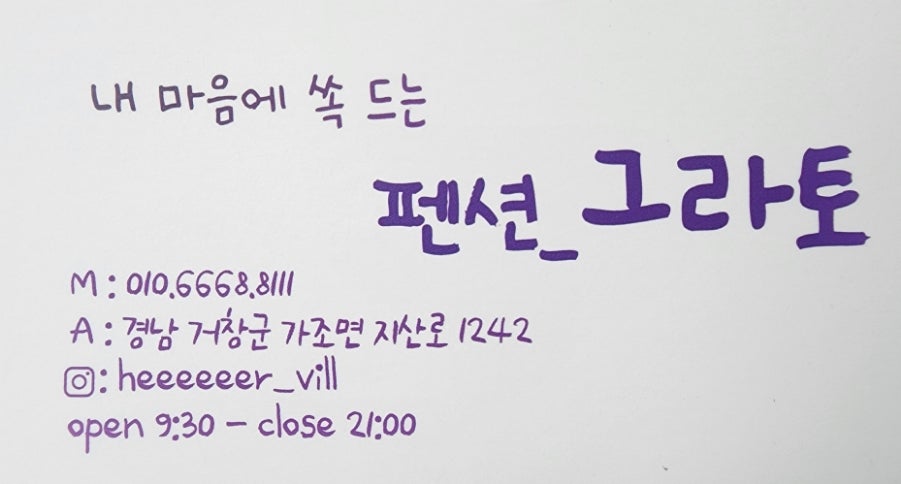 내 마음에 쏙 드는
펜션_그라토
M : 010.6668.8111
A : 경남 거창군 가조면 지산로 1242
: heeeeeer_vill
open 9:30 - close 21:00